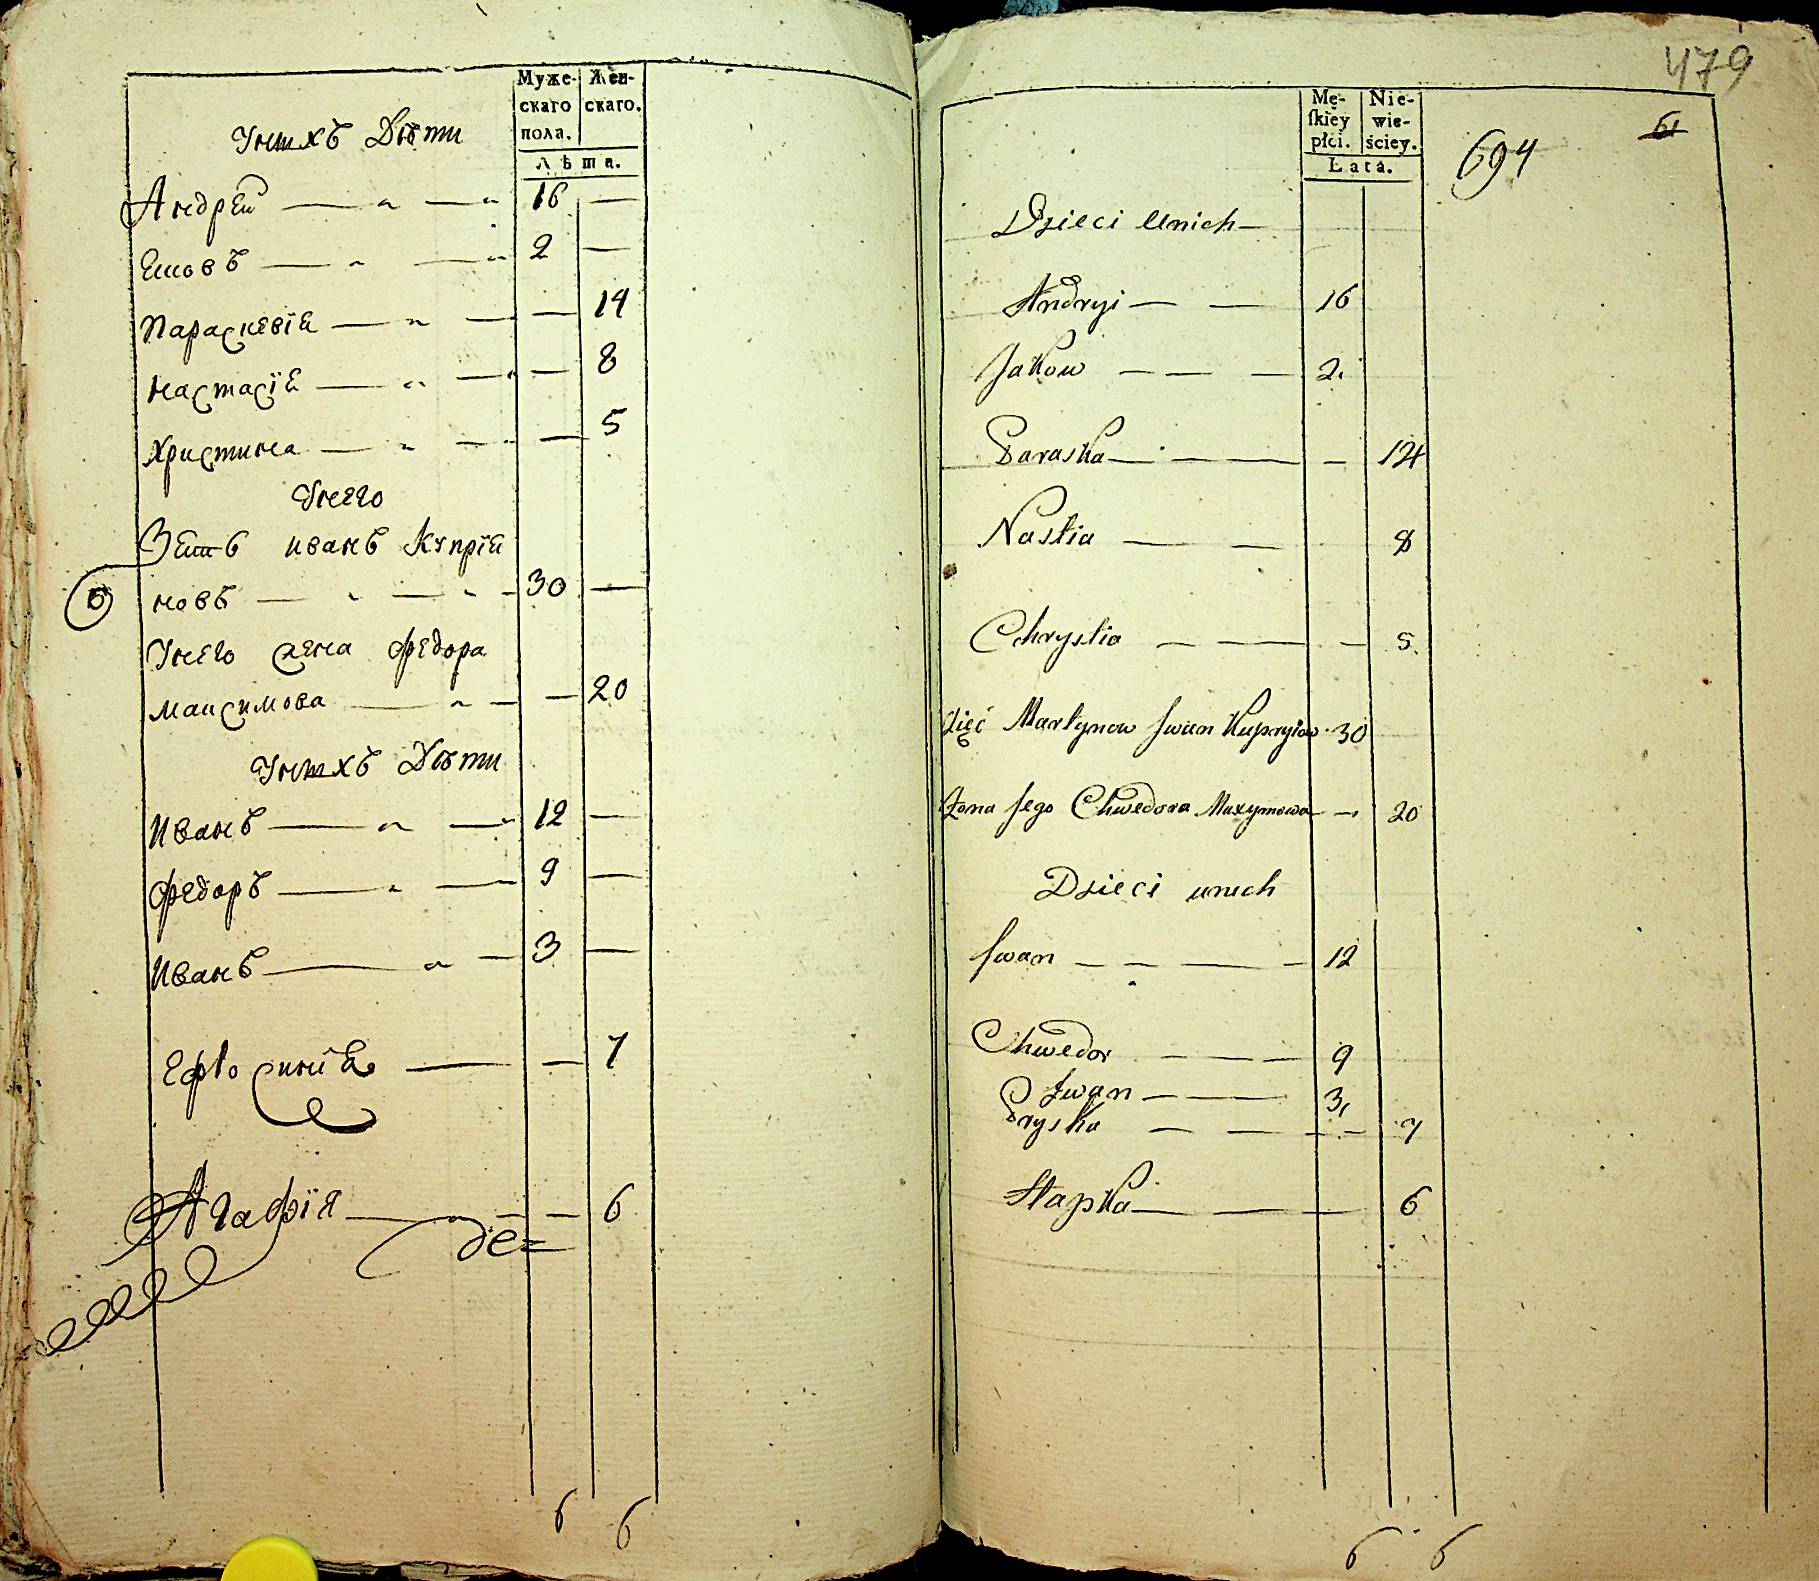 Муже-
скаго
пола.
Жен-
скаго.
Лѣта.
Унихъ Дѣти
Андрей — 16 —
Яковъ — 2 —
Параскевія — — 14
Настасія — — 8
Христина — — 5
Унего
Зять иванъ Купрія
новъ — 30 —
Унего жена федора
максимова — — 20
Унихъ Дѣти
Иванъ — 12 —
федоръ — 9 —
Иванъ — 3 —
Ефросинія — — 7
Агафія — — 6
6 6
479
61
694
Mę-
ſkiey
płci.
Nie-
wie-
ściey.
Łata.
Dzieci Unich —
Andryi — — 16
Jakow — — — 2.
Paraska — — — — 14
Nastia — — 8
Chrystia — — — 5.
Zięć Martynow Jwan Kupryiow 30
Żona Jego Chwedora Maxymowa — — 20
Dzieci unich
Jwan — — — — 12
Chwedor — — — 9
Jwan — — — 3,
Pryska — — — — 7
Hapka — — — 6
6 6